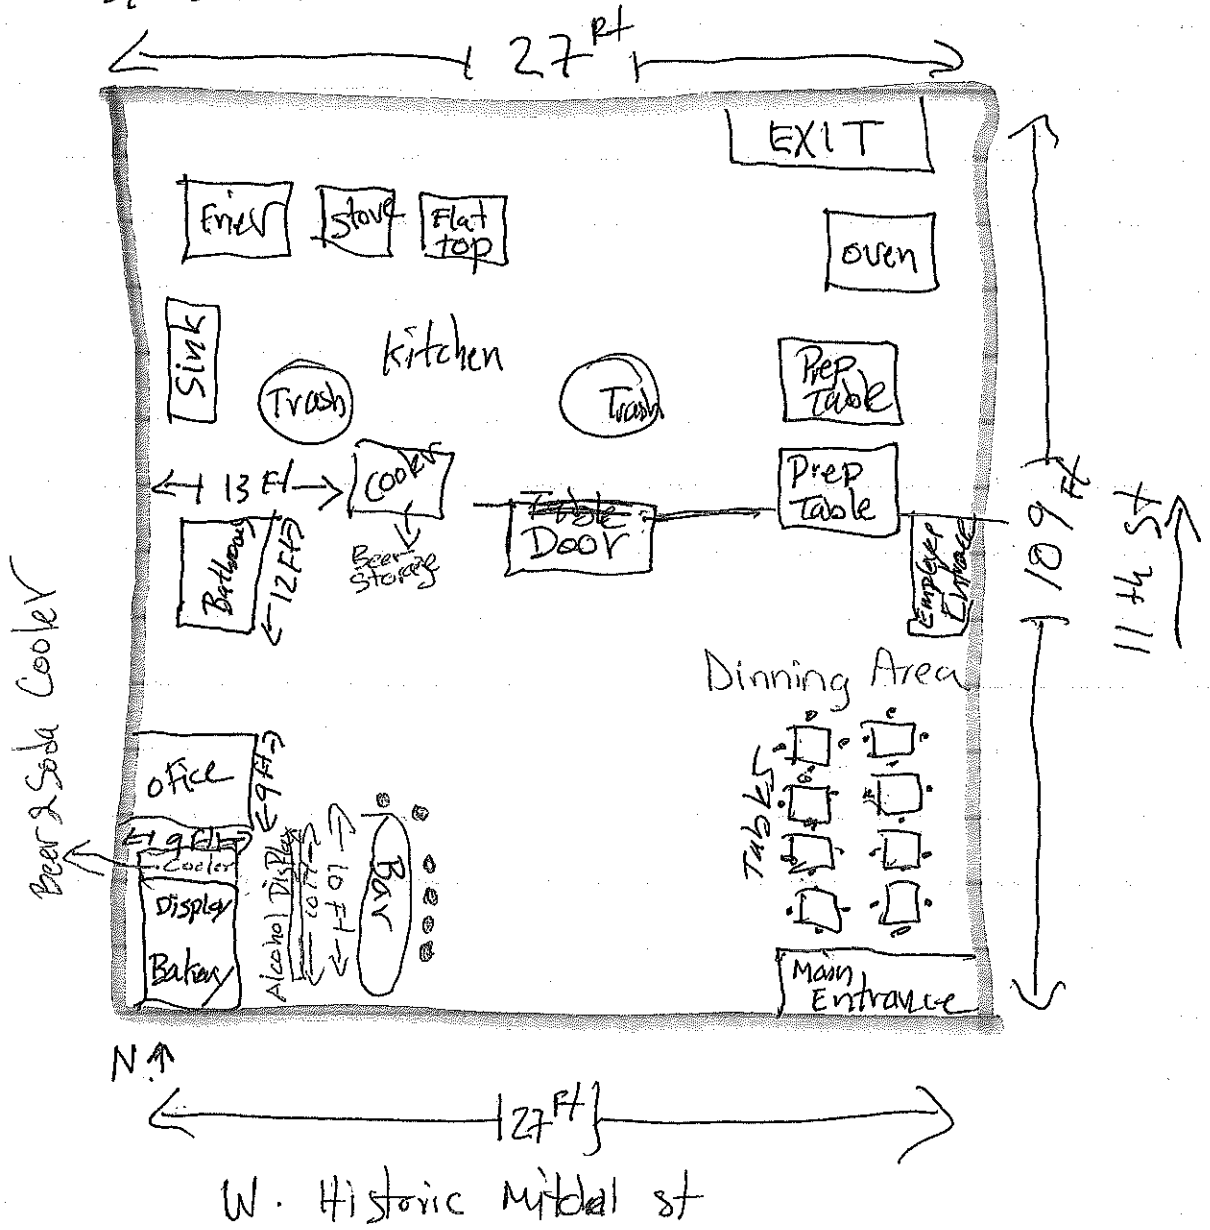 27 Ft
EXIT
Frier
Stove
Flat
top
oven
Sink
Kitchen
Trash
Trash
Prep
Table
13 Ft
Cooler
Prep
Table
Door
Beer
Storage
Bathroom
12 Ft
Employee
Entrace
109 Ft
11 th St
Dinning Area
Tables
Beer & Soda Cooler
ofice
9 Ft
9 Ft
Cooler
Display
Bakery
Alcohol Display
10 Ft
10 Ft
Bar
Main
Entrance
N
27 Ft
W. Historic Mitchal st